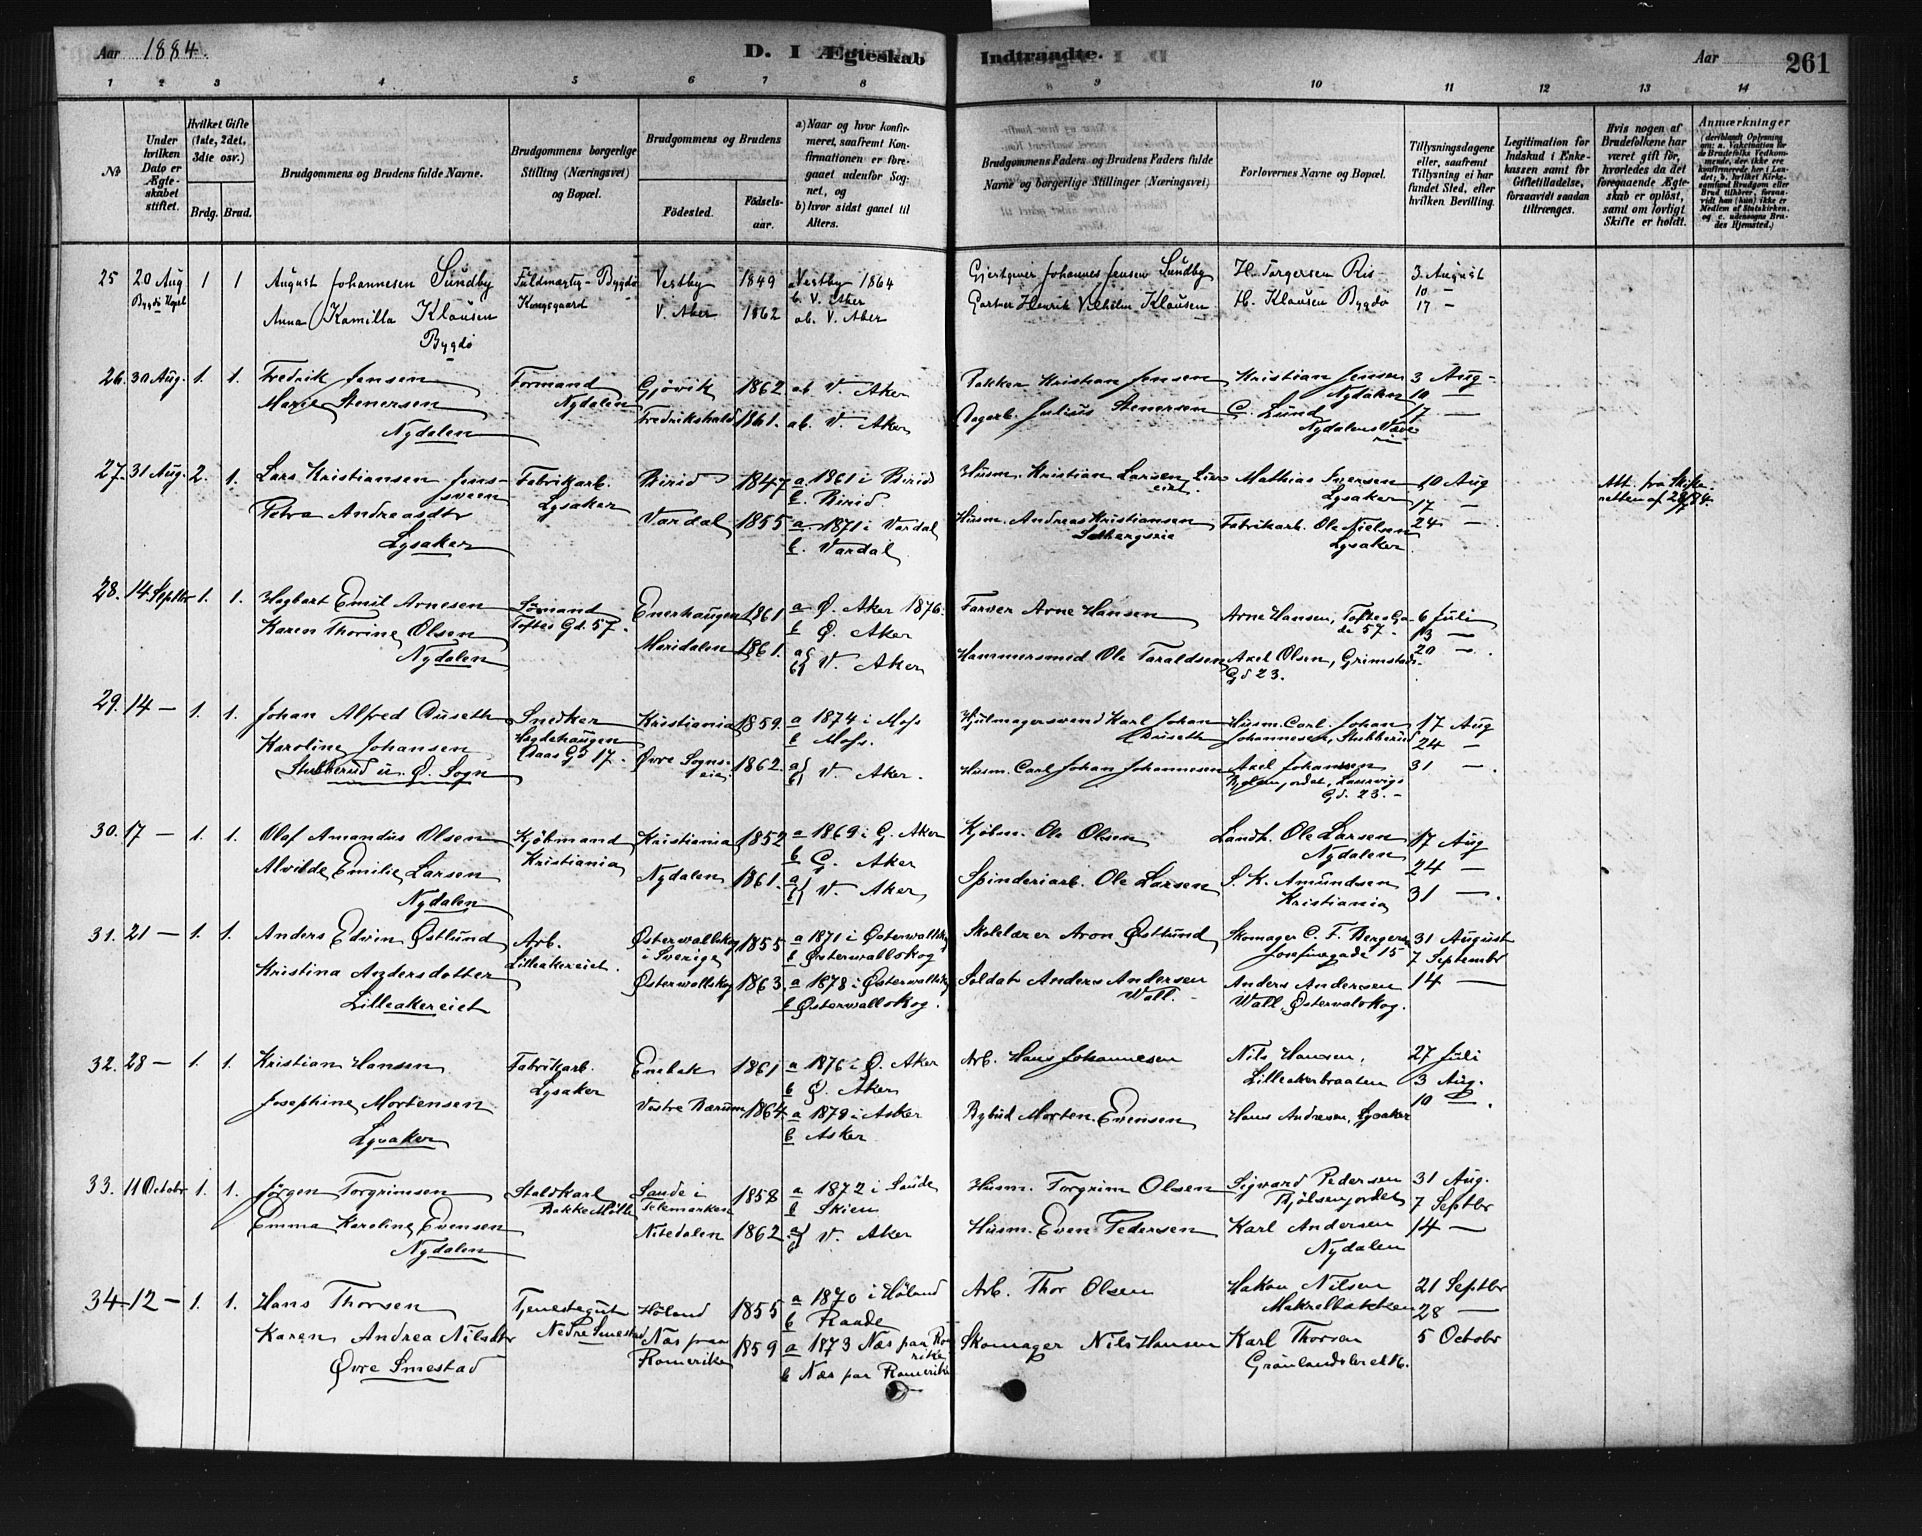 Aar 1884.
D. I Ægteskab Indtraadte.
Aar
261
1 2 3 4 5 6 7 8 8 9 10 11 12 13 14
№
Under hvilken Dato er Ægteskabet stiftet.
Hvilket Gifte (1ste, 2det, 3die osv.)
Brdg. Brud.
Brudgommens og Brudens fulde Navne.
Brudgommens borgerlige Stilling (Næringsvei) og Bopæl.
Brudgommens og Brudens
Födested.
Födselsaar.
a) Naar og hvor konfirmeret, saafremt Konfirmationen er foregaaet udenfor Sognet, og
b) hvor sidst gaaet til Alters.
Brudgommens Faders og Brudens Faders fulde Navne og borgerlige Stillinger (Næringsvei)
Forlovernes Navne og Bopæl.
Tillysningsdagene eller, saafremt Tillysning ei har fundet Sted, efter hvilken Bevilling.
Legitimation for Indskud i Enkekassen samt for Giftetilladelse, forsaavidt saadan tiltrænges.
Hvis nogen af Brudefolkene har været gift för, hvorledes da det foregaaende Ægteskab er oplöst, samt om lovligt Skifte er holdt.
Anmærkninger
25 20 Aug 1 1 August Johannesen Sundby Byggdö Vestby 1849 a Vestby 1864 Johannes Jensen Sundby H. Torgersen Ris 3. August
Bygdö Kapel Kongsgaard b. V. Aker 10 —
Anna Kamilla Klausen V. Aker 1862 ab. V. Aker Gartner Henrik Vilhelm Klausen H. Klausen Bygdö 17 —
Bygdö
26. 30 Aug. 1. 1. Fredrik Jensen Formand Gjövik 1862 ab V. Aker Pakker Kristian Jensen Kristian Jensen 3 Aug —
Marie Stenersen Nydalen Fredrikshald 1861. ab. V. Aker Dagarb. Julius Stenersen Nydalen 10 —
Nydalen C. Lund 17 —
Nydalens
27. 31 Aug. 2. 1. Lars Kristiansen Fabrikarb. Birid 1847 a 1861 i Birid Husm. Kristian Larsen Mathias Iversen 10 Aug Att. fra Skifte-
Lysaker b. Birid Lysaker 17 — retten af
Petra Andreasdtr Vardal 1855 a 1871 i Vardal Husm. Andreas Kristiansen Fabrikarb. Ole Nielsen 24 —
Lysaker b. Vardal Lysaker
28. 14 Septbr 1. 1. Hagbart Emil Arnesen Sømand Enerhaugen 1861 a Ø. Aker 1876. Farver Arne Hansen Arne Hansen, Toftes Ga- 6 Juli
Karen Thorine Olsen Toftes Gd. 57. b Ø. Aker de 57. 13 —
Nydalen Maridalen 1861. a b V. Aker Hammersmed Ole Taraldsen Axel Olsen, Grimstads- 20 —
Gd 23.
29. 14 — 1. 1. Johan Alfred Duseth Snedker Kristiania 1859. a 1874 i Moss Hjulmagersvend Karl Johan Husm. Carl Johan 17 Aug
Hægdehaugen b Moss. Duseth Johannesen, Stubberud 24 —
Karoline Johansen Gd 17. Øvre Sogns- 1862. a b V. Aker. Husm. Carl Johan Johannesen Axel Johansen 31 —
Stubberud u. Ø. Sogn eie Laurvigs
Gd. 23. —
30. 17 — 1. 1. Olaf Amandus Olsen Kjöbmand Kristiania 1852 a 1869 i G. Aker Kjöbm. Ole Olsen Landh. Ole Larsen 17 Aug
Kristiania b G. Aker Nydalen 24 —
Alvilde Emilie Larsen Nydalen 1861. a b V. Aker Spinderiarb. Ole Larsen S. K. Amundsen 31 —
Nydalen Kristiania
31. 21 — 1. 1. Anders Edvin Østlund Arb. Østerwallskog 1855 a 1871 i Østerwallskog Skolelærer Aron Østlund Skomager C. F. Bergersen 31 August
Lilleakereiet. i Sverige b Østerwallskog Josefinegade 15 7 September
Kristina Andersdotter Østerwallskog 1863. a 1878 i Østerwallskog Soldat Anders Andersen Anders Andersen 14 —
Lilleakereiet b Østerwallskog. Wall. Wall, Østerwalskog.
32. 28 — 1. 1. Kristian Hansen Fabrikarb. Enebak 1861 a 1876 i Ø. Aker Arb. Hans Johannesen Nils Hansen, 27 Juli
Lysaker b Ø. Aker Lilleakerbraaten 3 Aug.
Josephine Mortensen Vestre Bærum 1864 a 1878 i Asker Morten Evensen Hans Andresen, Lysaker 10 —
Lysaker b Asker
33. 11 Octobr 1. 1. Jørgen Torgrimsen Staldkarl Saude i 1858 a 1872 i Saude Husm. Torgrim Olsen Sigvard Pedersen 31 Aug.
Bakke Mölle Telemarken b Skien Bjölsenjordet 7 Septbr
Emma Karoline Evensen Nitedalen 1862. a b V. Aker Husm. Even Pedersen Karl Andersen 14 —
Nydalen Nydalen
34 12 — 1. 1. Hans Thorsen Tjenestegut Höland 1855 a 1870 i Höland Arb. Thor Olsen Hakon Nilsen 21 Septbr
Nedre Smestad b Raade Makrelbækken 28 —
Karen Andrea Nilsdtr Næs paa 1859 a 1873 Næs paa Ro- Skomager Nils Hansen Karl Thorsen 5 Octobr
Øvre Smestad Romerike merike Grönlandsleret 16.
b Næs paa Romerike